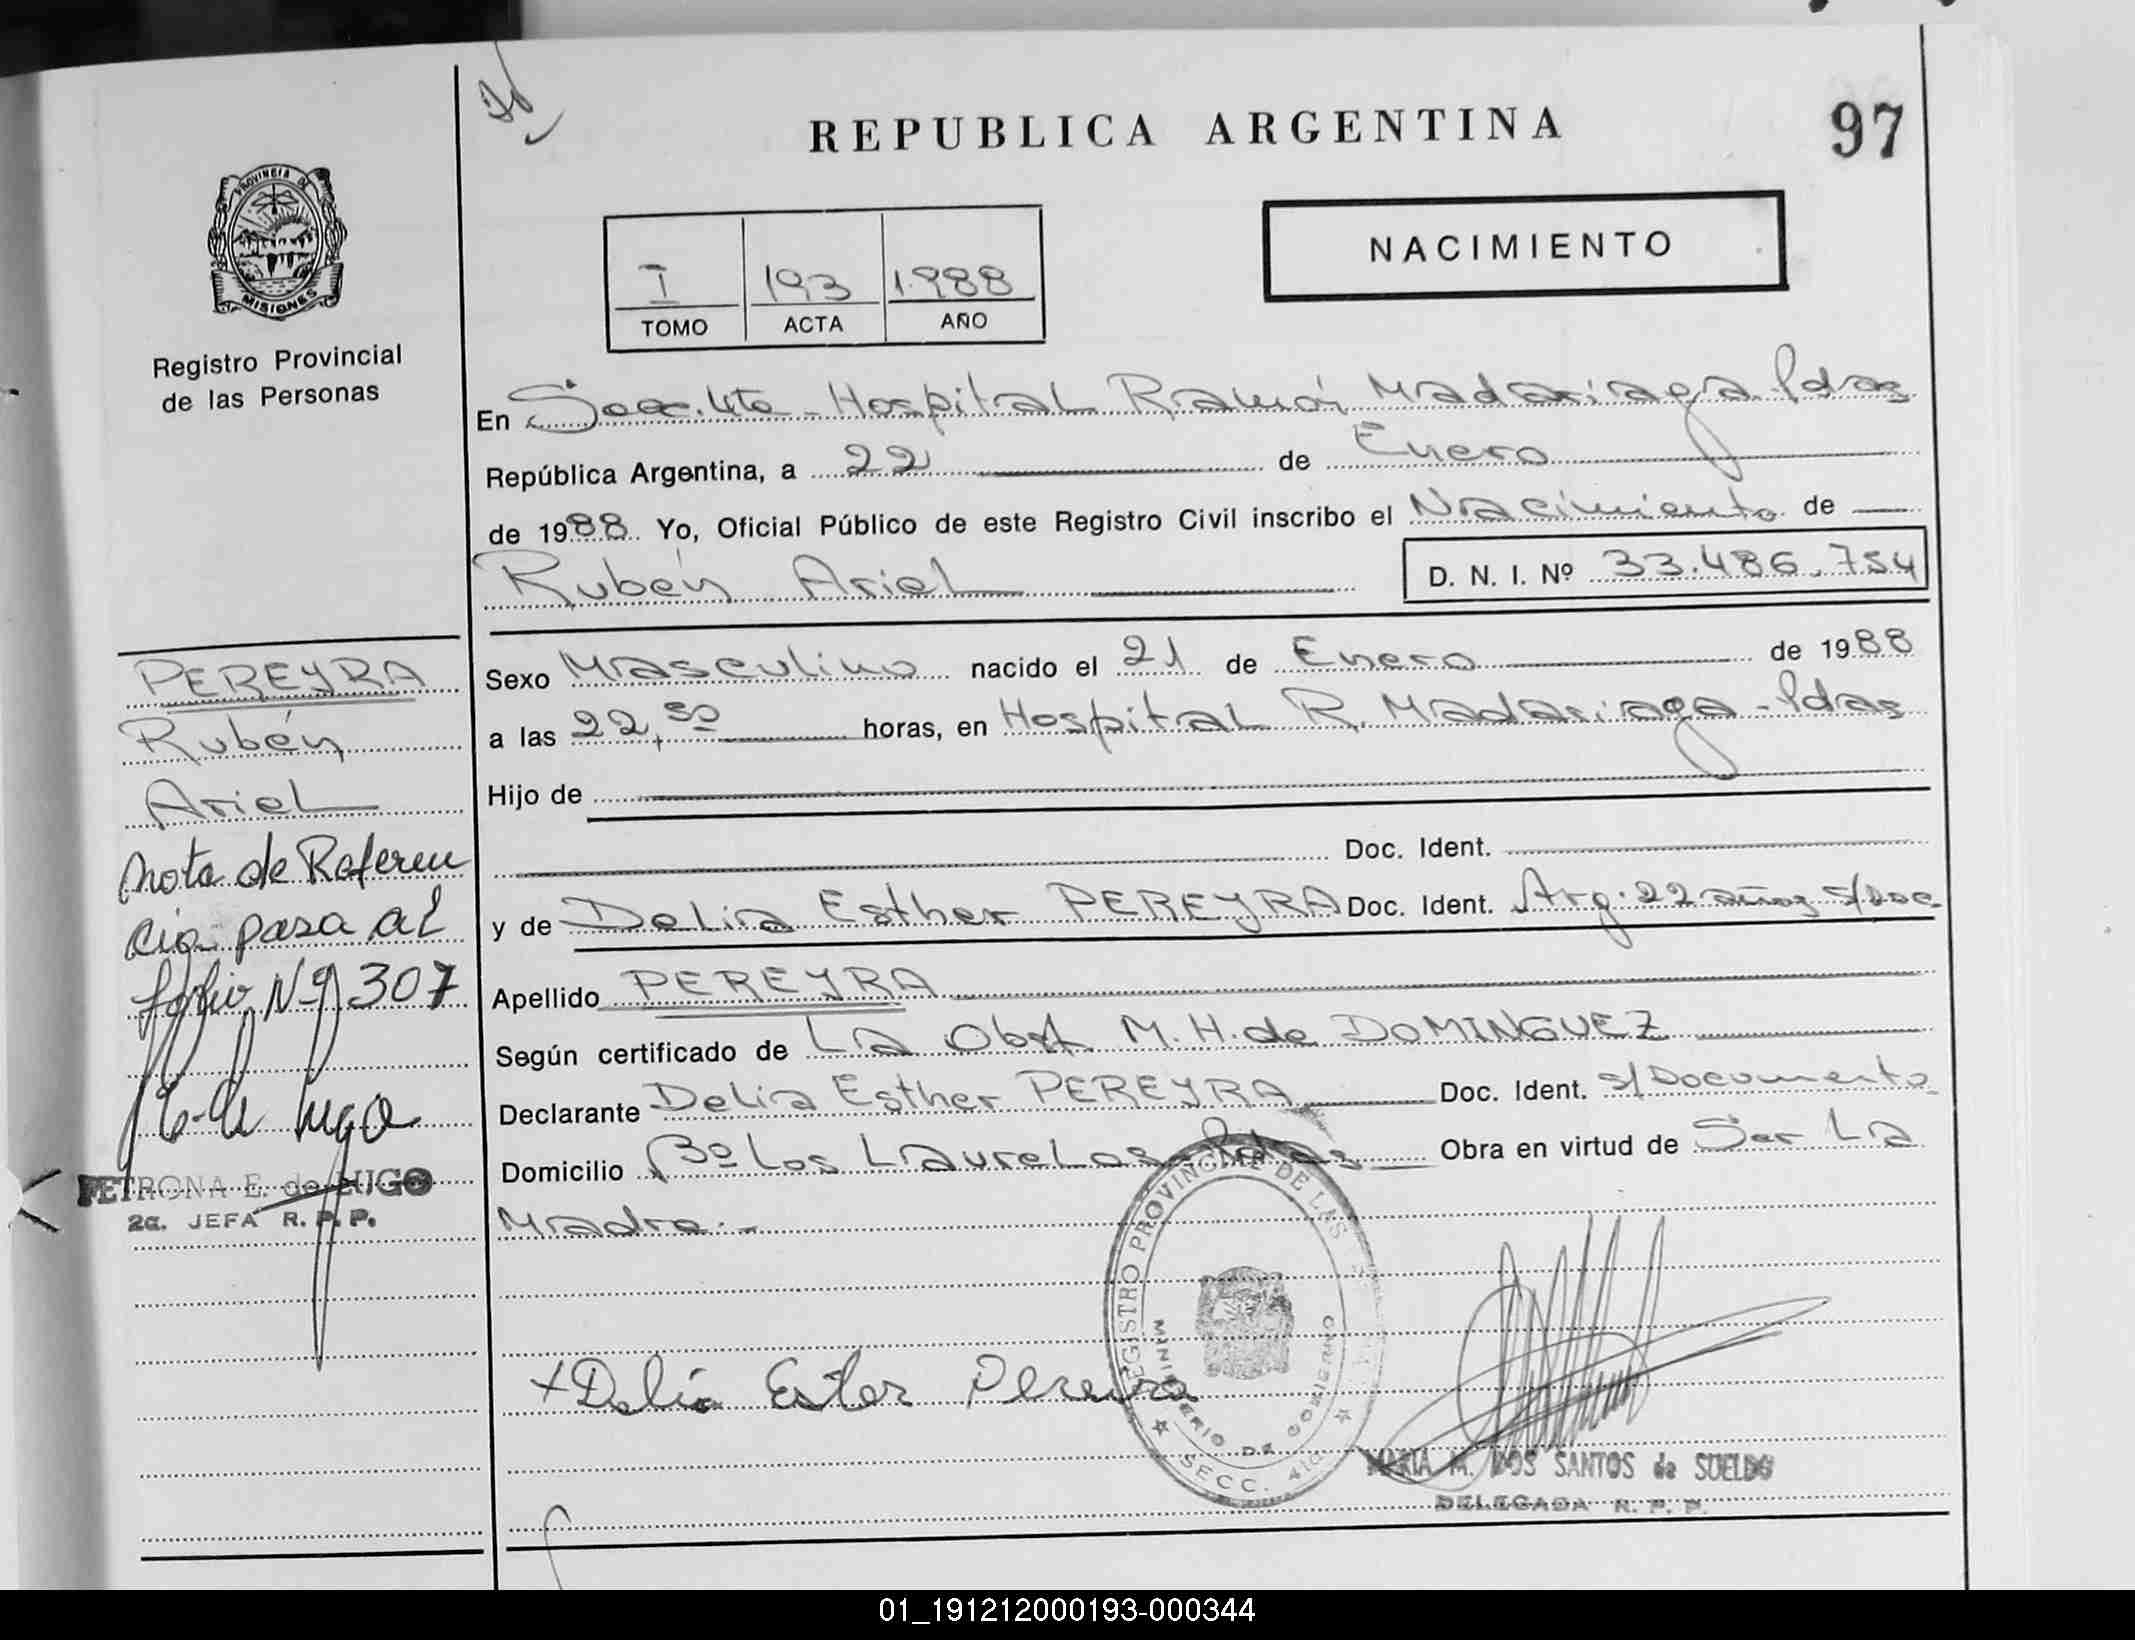 REPUBLICA ARGENTINA
97
PROVINCIA DE
MISIONES
Registro Provincial
de las Personas
NACIMIENTO
I 193 1.988
TOMO ACTA AÑO
En Secc. 4ta - Hospital Ramón Madariaga Pdas
República Argentina, a 22 de Enero
de 1988 Yo, Oficial Público de este Registro Civil inscribo el Nacimiento de
Rubén Ariel D. N. I. Nº 33.486.754
PEREYRA
Rubén
Ariel
Nota de Referen
cia pasa al
folio Nº 307
PETRONA E. de LUGO
2a. JEFA R. P. P.
Sexo Masculino nacido el 21 de Enero de 1988
a las 22,50 horas, en Hospital R. Madariaga - Pdas
Hijo de
Doc. Ident.
y de Delia Esther PEREYRA Doc. Ident. Arg. 22 años s/Doc.
Apellido PEREYRA
Según certificado de La Obst. M. H. de DOMINGUEZ
Declarante Delia Esther PEREYRA Doc. Ident. s/Documento
Domicilio Bº Los Laureles Pdas Obra en virtud de Ser La
Madre.-
REGISTRO PROVINCIAL DE LAS
MINISTERIO DE GOBIERNO
SECC. 4ta
+Delia Ester Pereira
MARIA M. DOS SANTOS de SUELDO
DELEGADA R. P. P.
01_191212000193-000344